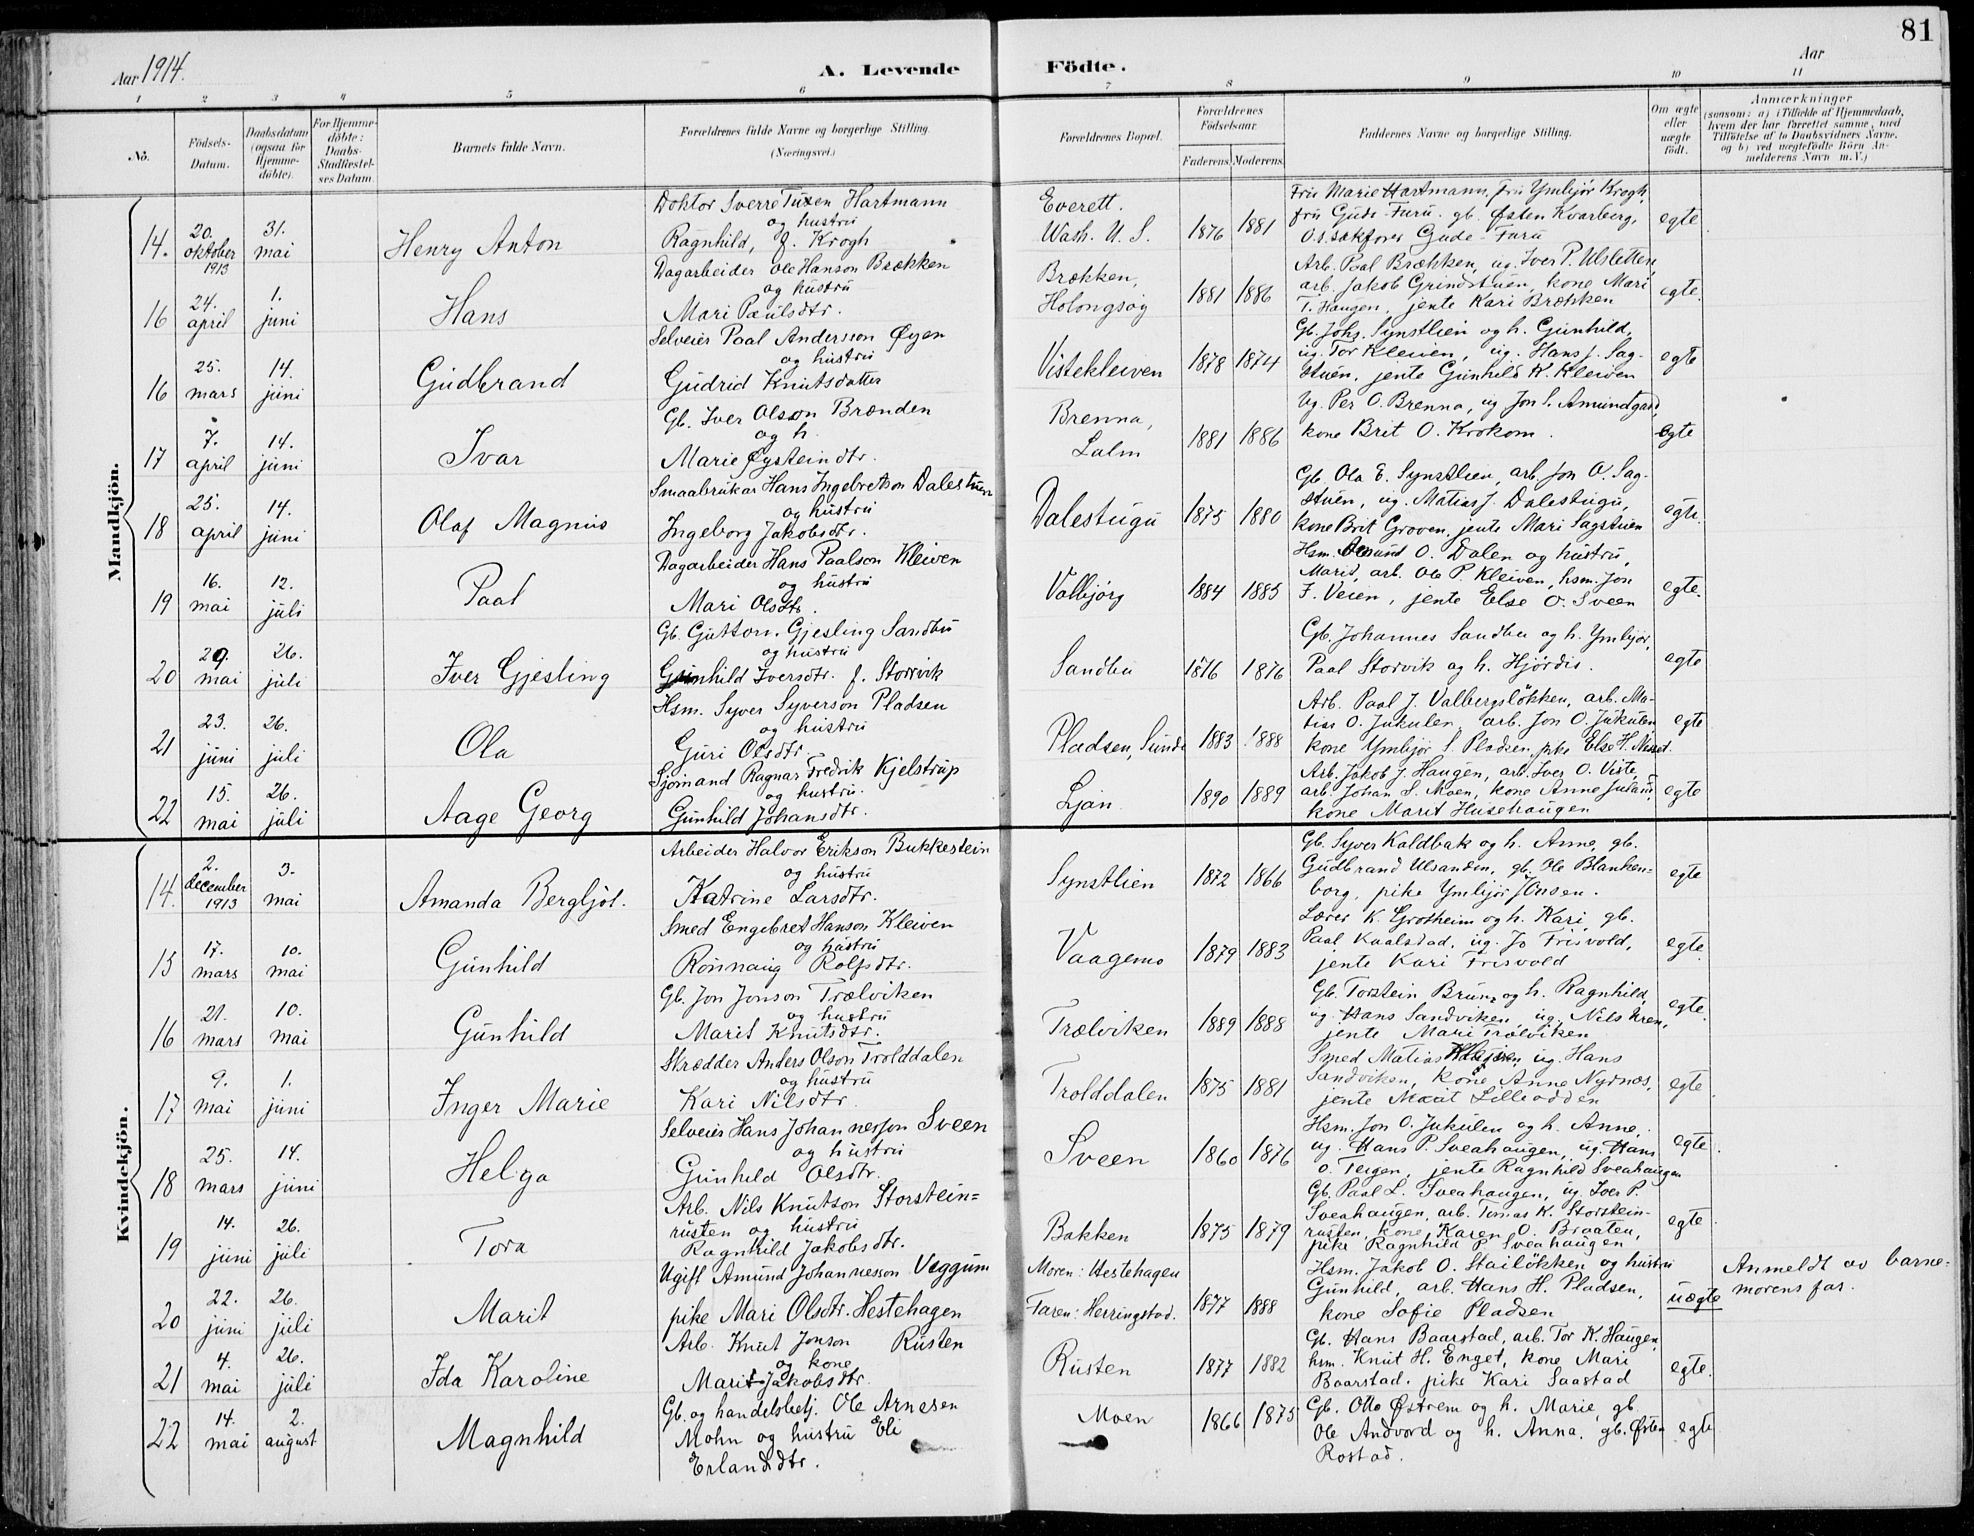 81
Aar 1914.
A. Levende Födte.
Aar
1 2 3 4 5 6 7 8 9 10 11
No.
Födsels-Datum.
Daabsdatum (ogsaa for Hjemmedöbte).
For Hjemmedöbte: Daabs-Stadfæstelses Datum.
Barnets fulde Navn.
Forældrenes fulde Navne og borgerlige Stilling. (Næringsvei.)
Forældrenes Bopæl.
Forældrenes Födselsaar.
Faderens. Moderens.
Faddernes Navne og borgerlige Stilling.
Om ægte eller uægte födt.
Anmærkninger
(saasom: a) i Tilfælde af Hjemmedaab, hvem der har forrettet samme, med Tilföielse af to Daabsvidners Navne, og b) ved uægtefödte Börn Anmelderens Navn m. V.)
Mandkjön.
14. 20. oktober 1913 31. mai Henry Anton
Doktor Sverre Tuxen Hartmann
og hustru
Ragnhild, f. Krogh
Everett.
Wash. U. S.
1876 1881
Fru Marie Hartmann, fru Ymbjør Krogh,
fru Gude-Furu. gb. Østen Kvarberg,
O.s.sakfører Gude-Furu
egte
16 24. april 1. juni Hans
Dagarbeider Ole Hanson Brækken
og hustru
Mari Paulsdtr.
Brækken,
Holongsøy
1881 1886
Arb. Paal Brækken, ug. Iver P. Ulsletten,
arb. Jakob Grindstuen, kone Mari
T. Haugen, jente Kari Brækken
egte.
16 25. mars 14. juni Gudbrand
Selveier Paal Anderson Øyen
og hustru
Gudrid Knutsdatter
Vistekleiven
1878 1874
Gb. Johs. Synstlien og h. Gunhild,
ug. Tor Kleiven, ug. Hans J. Sag-
stuen, jente Gunhild K. Kleiven
egte
17 7. april 14. juni Ivar
Gb. Iver Olson Brænden
og h.
Marie Øysteindtr.
Brenna,
Lalm
1881 1886
Ug. Per O. Brenna, ug Jon S. Amundgard,
kone Brit O. Krokom.
egte
18 25. april 14. juni Olaf Magnus
Smaabrukar Hans Ingebretson Dalestuen
og hustru
Ingeborg Jakobsdtr.
Dalestugu
1875 1880
Gb. Ola E. Synstlien, arb. Jon O. Sag-
stuen, ug. Matias J. Dalestugu,
kone Brit Groven, jente Mari Sagstuen
egte.
19 16. mai 12. juli Paal
Dagarbeider Hans Paalson Kleiven
og hustru
Mari Olsdtr.
Valbjørg
1884 1885
Hsm. Amund O. Dalen og hustru,
Marit, arb. Ole P. Kleiven, hsm. Jon
F. Veien, jente Else O. Sveen
egte.
20 29. mai 26. juli Iver Gjesling
Gb. Guttorm Gjesling Sandbu
og hustru
Gunhild Iversdtr. f. Storvik
Sandbu
1876 1876
Gb. Johannes Sandbu og h. Ymbjør,
Paal Storvik og h. Hjørdis.
egte
21 23. juni 26. juli Ola
Hsm. Syver Syverson Pladsen
og hustru
Guri Olsdtr.
Pladsen, Sunde
1883 1888
Arb. Paal J. Valbergsløkken, arb. Ma-
tias O. Jukulen, arb. Jon O. Jukulen
kone Ymbjør S. Pladsen, pike Else H.
egte
22 15. mai 26. juli Aage Georg
Sjømand Ragnar Fredrik Kjelstrup
og hustru.
Gunhild Johansdtr.
Ljan
1890 1889
Arb. Jakob J. Haugen, arb. Iver O. Viste,
arb. Johan S. Moen, kone Anne
kone Marit Husehaugen
egte
Kvindekjön.
14. 2. december 1913 3. mai Amanda Bergljot.
Arbeider Halvor Erikson Bukkestein
og hustru
Katrine Larsdtr.
Synstlien
1872 1866
Gb. Syver Kaldbak og h. Anne, gb.
Gudbrand Ulsanden, gb. Ole Blanken-
borg, pike Ymbjør Jonsen.
egte
15 17. mars 10. mai Gunhild
Smed Engebret Hanson Kleiven
og hustru
Rønnaug Rolfsdtr.
Vaagemo
1879 1883
Lærer K. Grotheim og h. Kari, gb.
Paal Kaalstad, ug. Jo Frisvold,
jente Kari Frisvold
egte.
16 21. mars 10. mai Gunhild
Gb. Jon Jonson Trælviken
og hustru
Marit Knutsdtr.
Trælviken
1889 1888
Gb. Torstein Brun og h. Ragnhild,
ug. Hans Sandviken, ug. Nils
jente Mari Trælviken
egte.
17 9. mai 1. juni Inger Marie
Skrædder Anders Olson Trolddalen
og hustru
Kari Nilsdtr.
Trolddalen
1875 1881
Smed Matias Kleiven, ug Hans
Sandviken, kone Anne Nyrnæs,
jente Marit Lilleodden
egte.
18 25. mars 14. juni Helga
Selveier Hans Johannesson Sveen
og hustru
Gunhild Olsdtr.
Sveen
1860 1876
Hsm. Jon O. Jukulen og h. Anne,
ug. Hans P. Sveahaugen, ug. Hans
O. Teigen, jente Ragnhild Sveahaugen
egte.
19 14. juni 26. juli Tora
Arb. Nils Knutson Storstein=
rusten og hustru
Ragnhild Jakobsdtr.
Bakken
1875 1879
Gb. Paal L. Sveahaugen, ug. Iver P.
Sveahaugen, arb. Tomas K. Storstein-
rusten, kone Karen O. Braaten,
pike Ragnhild P. Sveahaugen
egte
20 22. juni 26. juli Marit
Ugift Amund Johannesson Veggum
pike Mari Olsdtr. Hestehagen
Moren: Hestehagen
Faren: Herringstad.
1877 1888
Hsm. Jakob O. Stailøkken og hustru
Gunhild, arb. Hans H. Pladsen,
kone Sofie Pladsen
uegte
Anmeldt av barne-
morens far.
21 4. mai 26. juli Ida Karoline
Arb. Knut Jonson Rusten
og kone
Marit Jakobsdtr.
Rusten
1877 1882
Gb. Hans Baarstad, arb. Tor K. Haugen,
hsm. Knut H. Enget, kone Mari
Baarstad, pike Kari Saastad
egte.
22 14. mai 2. august Magnhild
Gb. og handelsbetj. Ole Arnesen
Mohn og hustru Eli
Erlandsdtr.
Moen
1866 1875
Gb. Otto Østrem og h. Marie, gb
Ole Andvord og h. Anna, gb. Østen
Rostad.
egte